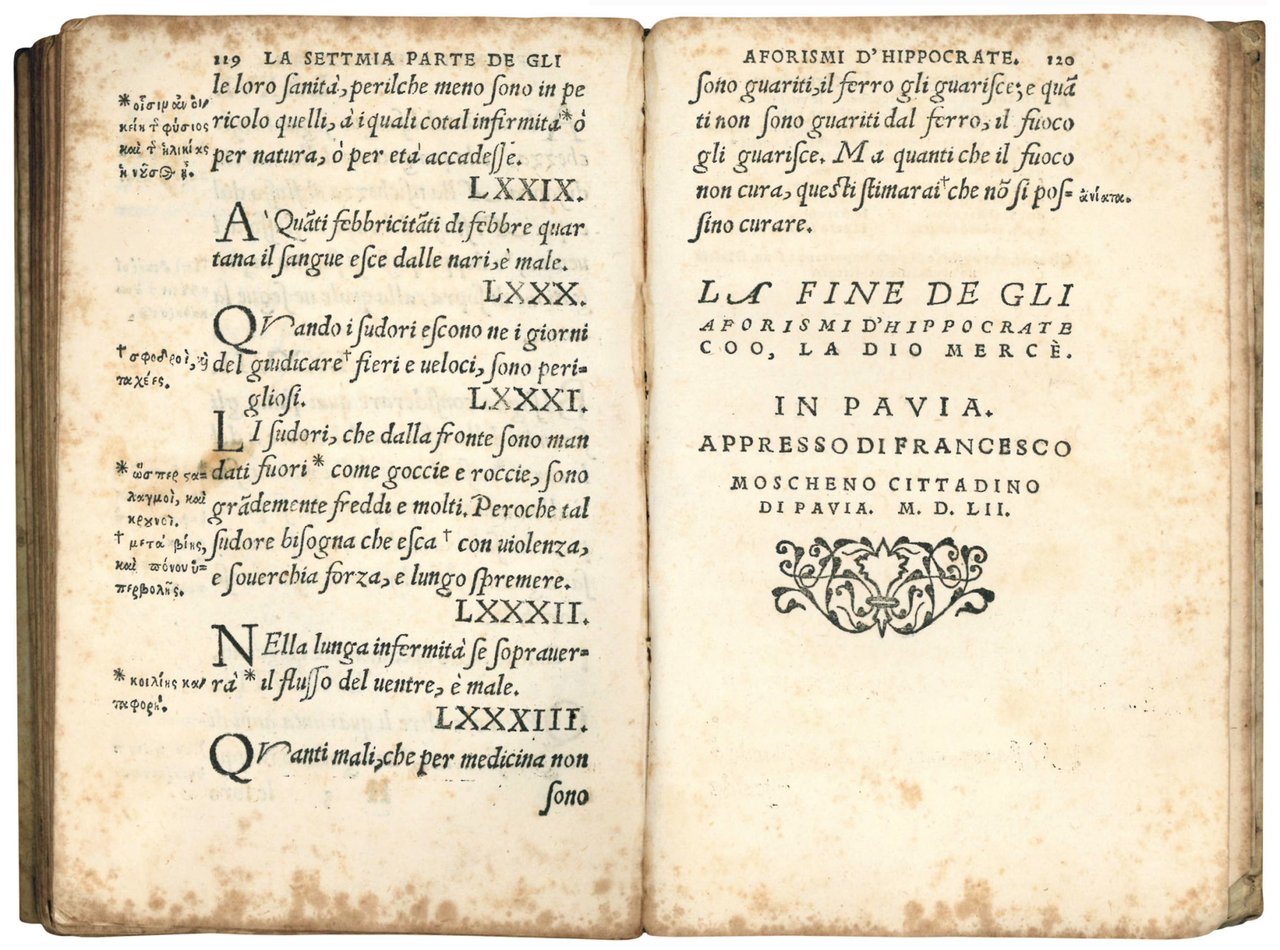 119 LA SETTMIA PARTE DE GLI
le loro sanità, perilche meno sono in pe
ricolo quelli, à i quali cotal infirmità* ò
per natura, ò per età accadesse.
LXXIX.
A' Quãti febbricitãti di febbre quar
tana il sangue esce dalle nari, è male.
LXXX.
QVando i sudori escono ne i giorni
del giudicare† fieri e ueloci, sono peri-
gliosi. LXXXI.
LI sudori, che dalla fronte sono man
dati fuori* come goccie e roccie, sono
grãdemente freddi e molti. Peroche tal
sudore bisogna che esca † con uiolenza,
e souerchia forza, e lungo spremere.
LXXXII.
NElla lunga infermità se soprauer-
rà* il flusso del uentre, è male.
LXXXIII.
QVanti mali, che per medicina non
sono
καὶ τ ἡλικίης
† σφοδροὶ, ϗ
ταχέες.
* ὥσπερ σα-
λαγμοὶ, καὶ
κρουνοὶ.
† μετὰ βίης,
καὶ πόνου ὑ-
περβολῆς.
* κοιλίης κα
ταφορὴ.
AFORISMI D'HIPPOCRATE. 120
sono guariti, il ferro gli guarisce; e quã
ti non sono guariti dal ferro, il fuoco
gli guarisce. Ma quanti che il fuoco
non cura, questi stimarai† che nõ si pos-
sino curare.
ἀνίατα.
LA FINE DE GLI
AFORISMI D'HIPPOCRATE
COO, LA DIO MERCÈ.
IN PAVIA.
APPRESSO DI FRANCESCO
MOSCHENO CITTADINO
DI PAVIA. M. D. LII.